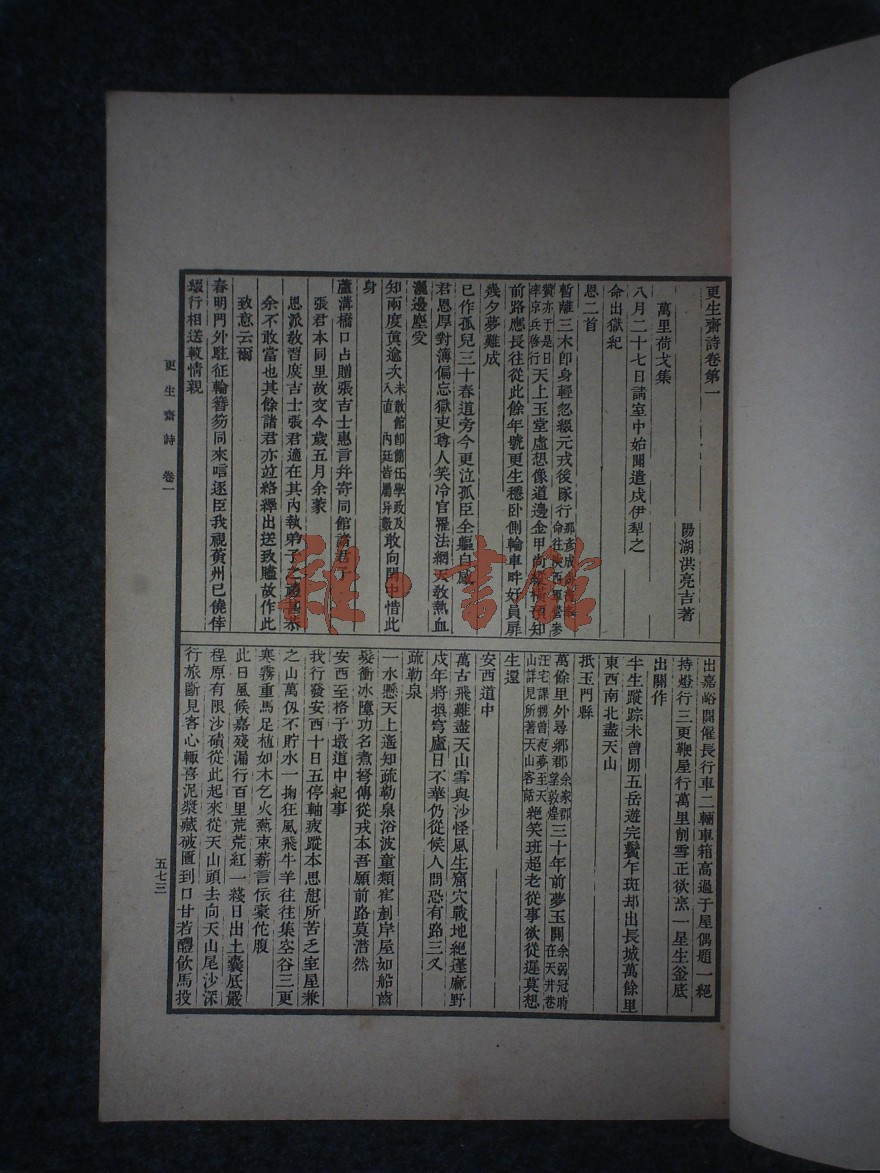 更生齋詩卷第一
陽湖洪亮吉著
萬里荷戈集
八月二十七日請室中始聞遣戍伊犁之
命出獄紀
恩二首
暫離三木卽身輕忽綴元戎後隊行
前路應長往從此餘年號更生穩卧側輪車畔好員屏
幾夕夢難成
已作孤兒三十春道旁今更泣孤臣全軀自感
君恩厚對薄偏忘獄吏尊人笑冷官罹法網天敎熱血
灑邊塵受
知兩度眞逾次未散館卽簡任學政及入直內廷皆屬异數敢向閒中惜此
身
蘆溝橋口占贈張吉士惠言幷寄同館諸君子
張君本同里故交今歲五月余蒙
恩派敎習庶吉士張君適在其內執弟子之禮甚恭
余不敢當也其餘諸君亦並絡繹出送致贐故作此
致意云爾
春明門外駐征輪簪笏同來唁逐臣我視黃州已僥倖
綴行相送載情親
出嘉峪關僱長行車二輛車箱高過于屋偶題一絕
持燈行三更鞭星行萬里削雪正欲烹一星生釜底
出關作
半生蹤踪未曾閒五岳遊完鬢乍斑却出長城萬餘里
東西南北盡天山
抵玉門縣
萬餘里外尋鄉郡余家郡望敦煌三十年前夢玉關余弱冠時在天井巷汪宅課甥曾夜夢至天山詳見所著天山客話絕笑班超老從事欲從遲莫想
生還
安西道中
萬古飛難盡天山雪與沙怪風生窟穴戰地絕蓬麻野
戍年將換穹廬日不華仍從候人問恐有路三叉
疏勒泉
一水懸天上遙知疏勒泉浴波童類雀剷岸屋如船齒
髮衝冰隴功名煮弩傳從戎本吾願前路莫潸然
安西至格子墩道中紀事
我行發安西十日五停軸疲蹤本思憩所苦乏室屋兼
之山萬仭不貯水一掬狂風飛牛羊往往集空谷三更
寒霧重馬足植如木乞火爇束薪言依橐佗腹
此日風候嘉殘漏行百里荒荒紅一綫日出土囊底嚴
程原有限沙磧從此起來從天山頭去向天山尾沙深
行旅斷見客心輒喜泥漿藏破匱到口甘若醴飲馬投
更生齋詩 卷一
五七三